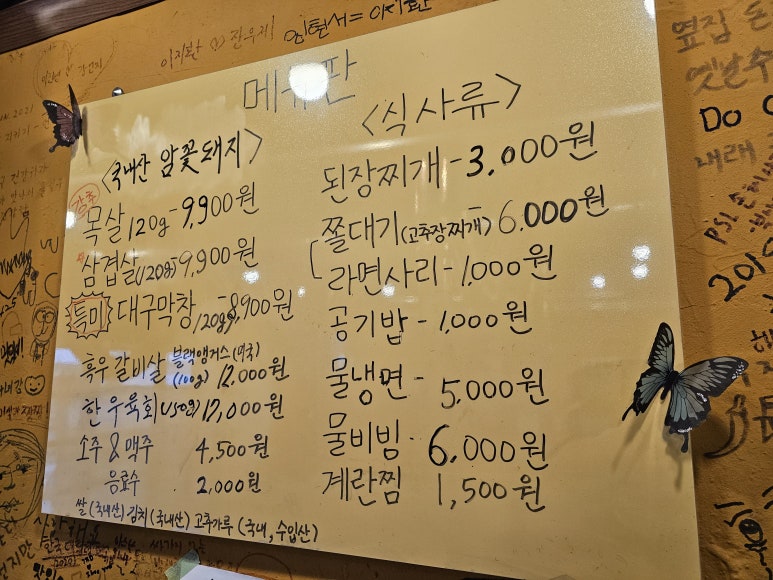 이지환 ♡ 진우제
임현서 = 이재환
메뉴판
<국내산 암꽃돼지>
강추 목살 120g - 9,900원
삼겹살 (120g) - 9,900원
특미 대구막창 120g - 8,900원
흑우 갈비살 블랙앵거스 (미국) (100g) 12,000원
한우육회 (150g) 17,000원
소주 & 맥주 4,500원
음료수 2,000원
쌀 (국내산) 김치 (국내산) 고추가루 (국내, 수입산)
<식사류>
된장찌개 - 3,000원
쫄대기 (고추장찌개) 6,000원
라면사리 - 1,000원
공기밥 - 1,000원
물냉면 - 5,000원
물비빔 - 6,000원
계란찜 1,500원
옆집 돈
옛날수
Do
내래
PSL
201